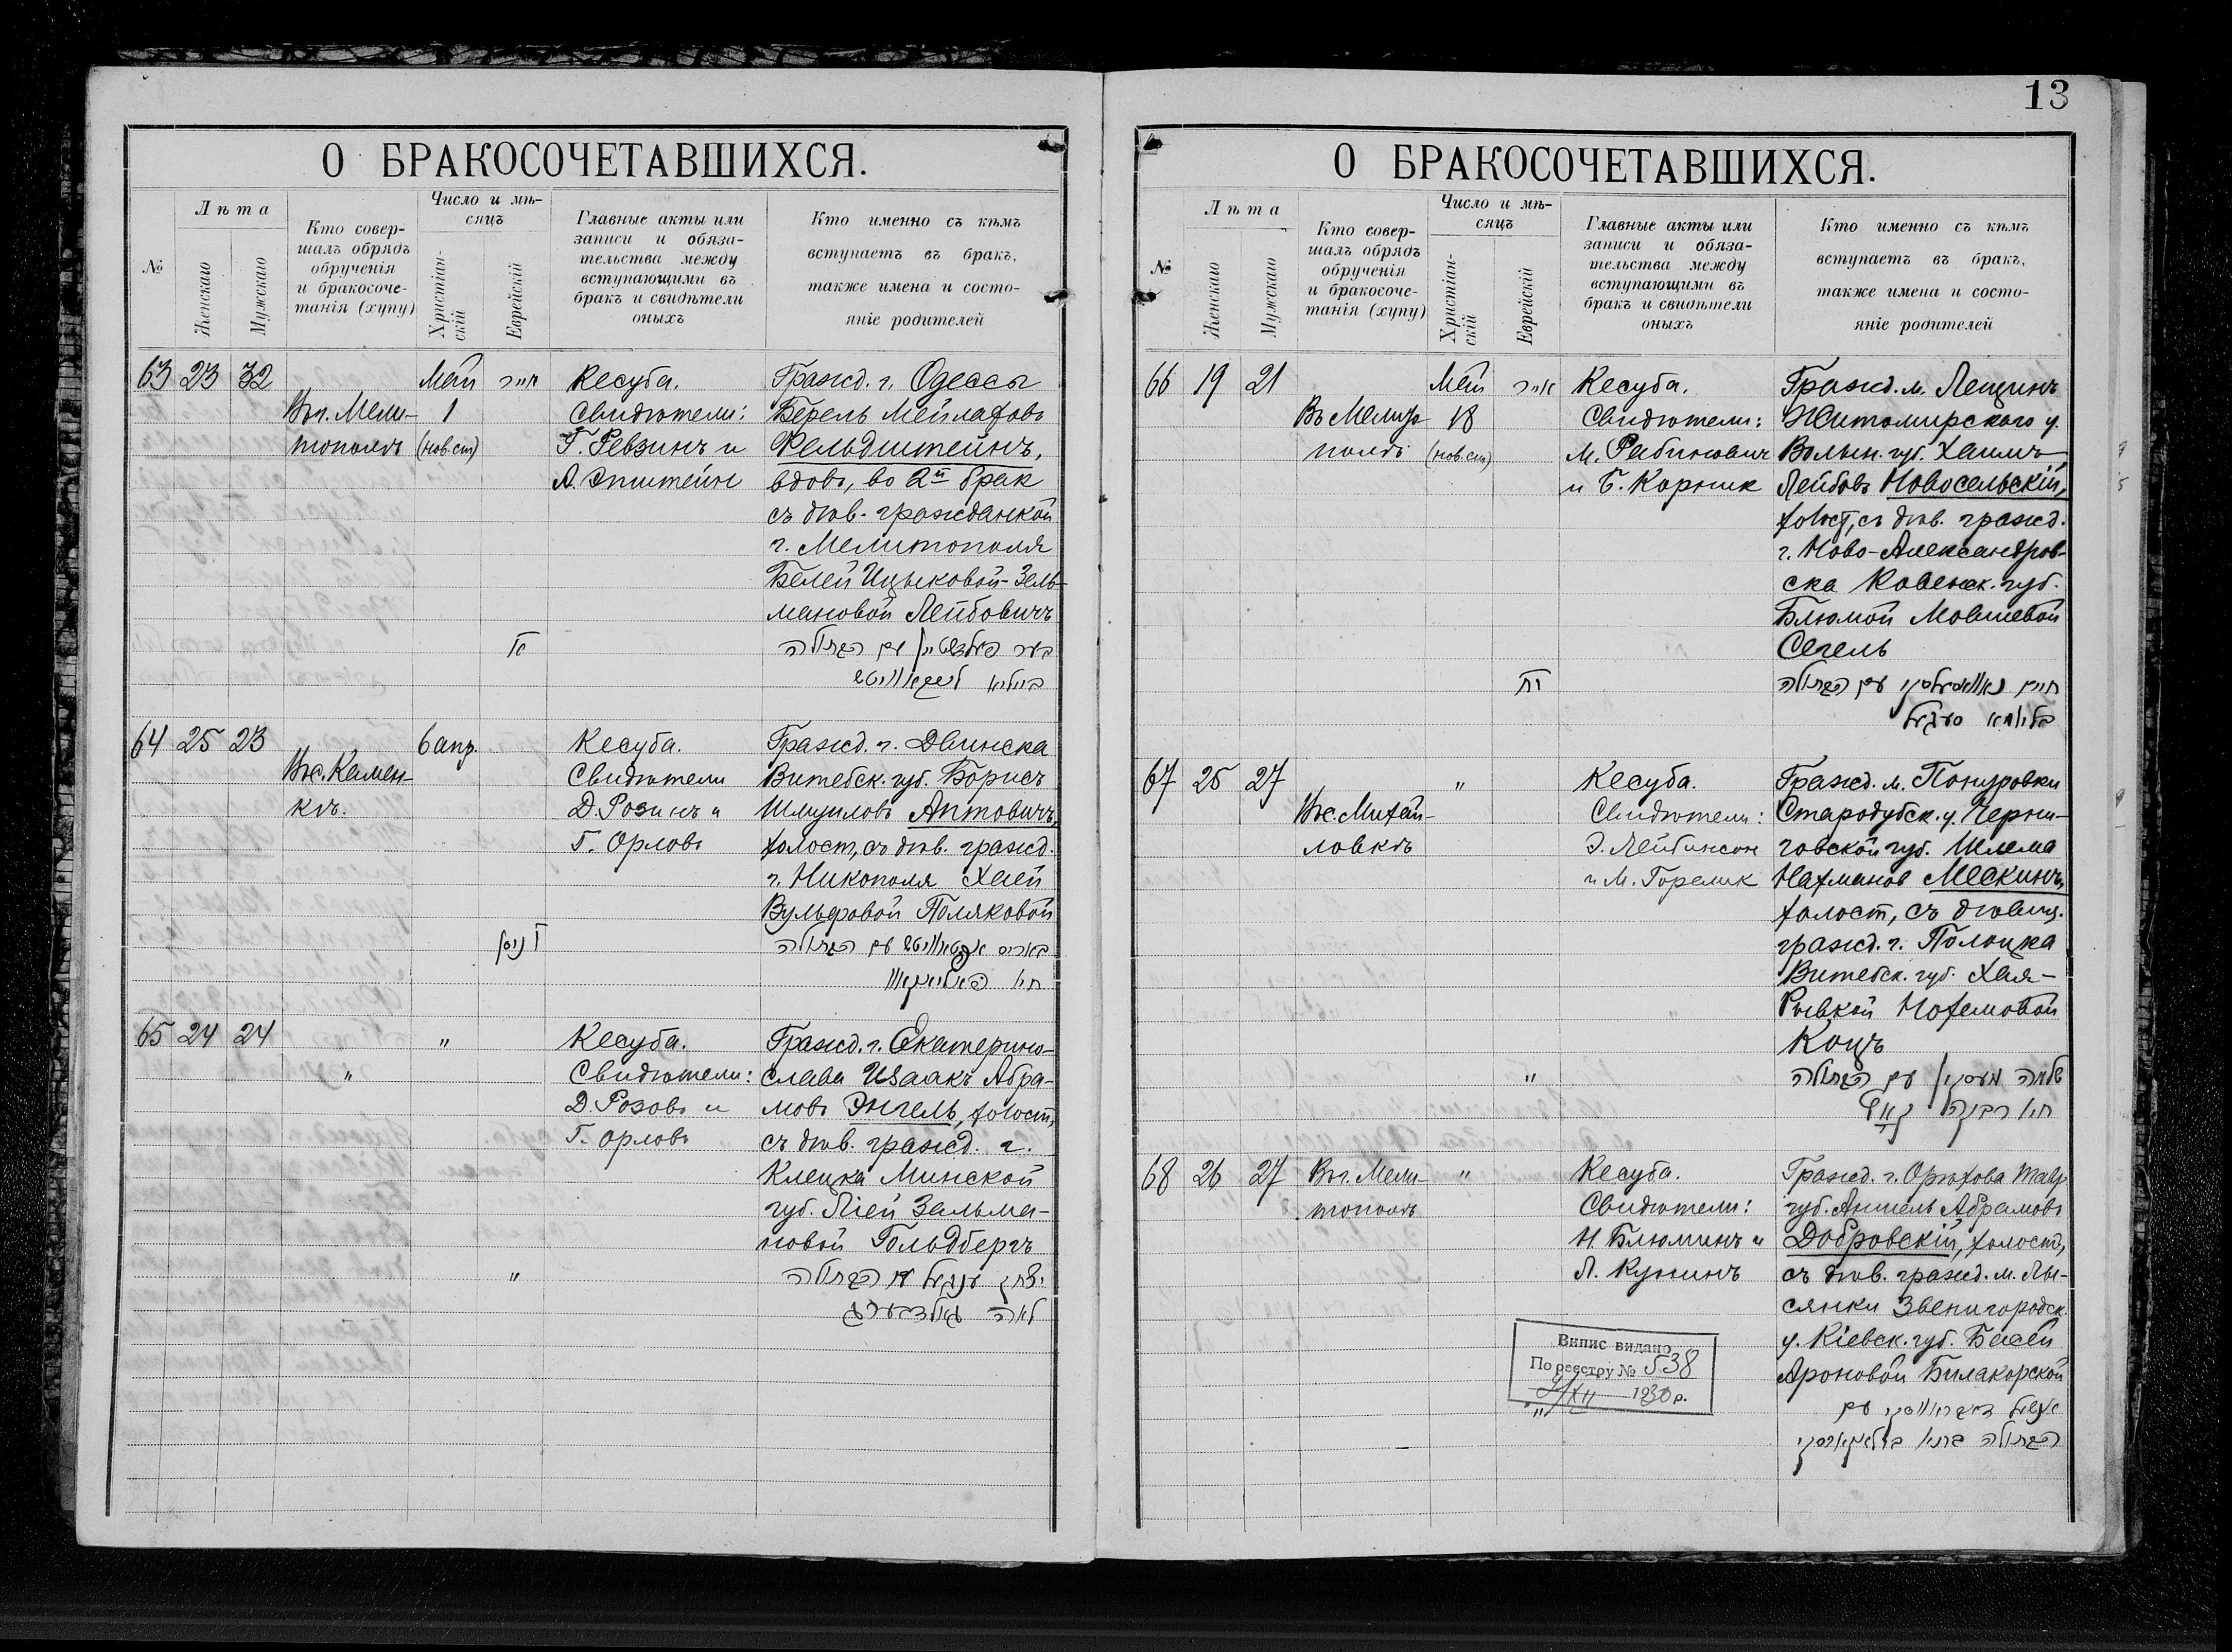 13
О БРАКОСОЧЕТАВШИХСЯ.
№
Лѣта
Женскаго
Мужскаго
Кто совер-
шалъ обрядъ
обрученія
и бракосоче-
танія (хупу)
Число и мѣ-
сяцъ
Христіан-
скій
Еврейскій
Главные акты или
записи и обяза-
тельства между
вступающими въ
бракъ и свидѣтели
оныхъ
Кто именно съ кѣмъ
вступаетъ въ бракъ,
также имена и состо-
яніе родителей
63 23 32
Въ г. Мели-
тополѣ
Май
1
(нов. ст)
אייר
Кесуба.
Свидѣтели:
Г. Ревзинъ и
А. Эпштейн
Гражд. г. Одессы
Берель Мейлаховъ
Фельдштейнъ,
вдовъ, во 2й брак
съ дѣв. гражданкой
г. Мелитополя
Белей Ицыковой-Зель-
мановой Лейбовичъ
בער פעלדשטיין עם הבתולה
ביילא לייבאוויטש
64 25 23
Въ с. Камен-
кѣ.
6 апр.
ניסן
Кесуба.
Свидѣтели
Д. Розинъ и
Г. Орловъ
Гражд. г. Двинска
Витебск. губ. Борисъ
Шмуиловъ Аптовичъ,
холост, съ дѣв. гражд.
г. Никополя Хаей
Вульфовой Поляковой
עם הבתולה
חיי'
65 24 24
"
"
"
Кесуба.
Свидѣтели:
Д. Розовъ и
Г. Орловъ
Гражд. г. Екатерино-
слава Изаакъ Абра-
мовъ Энгель, холост,
съ дѣв. гражд. г.
Клецка Минской
губ. Лiей Зельма-
новой Гольдбергъ
יצחק ענגעל עם הבתולה
לאה גאלדבערג
О БРАКОСОЧЕТАВШИХСЯ.
№
Лѣта
Женскаго
Мужскаго
Кто совер-
шалъ обрядъ
обрученія
и бракосоче-
танія (хупу)
Число и мѣ-
сяцъ
Христіан-
скій
Еврейскій
Главные акты или
записи и обяза-
тельства между
вступающими въ
бракъ и свидѣтели
оныхъ
Кто именно съ кѣмъ
вступаетъ въ бракъ,
также имена и состо-
яніе родителей
66 19 21
Въ Мелито
полѣ
Май
18
(нов. ст)
אייר
Кесуба.
Свидѣтели:
М. Рабинович
и Б. Корник
Гражд. м. Лещинъ
Житомирскаго у.
Волын. губ. Хаимъ
Лейбовъ Новосельскій,
холост, съ дѣв. гражд.
г. Ново-Александров-
ска Ковенск. губ.
Блюмой Мовшевой
Сегель
חיים נאוואסעלסקי עם הבתולה
בלומא סעגעל
67 25 27
Въ с. Михай-
ловкѣ
"
"
Кесуба.
Свидѣтели:
Э. Лейбинсон
и М. Горелик
Гражд. м. Понуровки
Стародубск. у. Черни-
говской губ. Шлема
Нахманов Мескинъ,
холост, съ дѣвиц.
гражд. г. Полоцка
Витебск. губ. Хая-
Рывкой Нохемовой
Коцъ
שלמה מעסקין עם הבתולה
חי' רבקה קאץ
68 26 27
Въ г. Мели-
тополѣ
"
"
Кесуба.
Свидѣтели:
Н. Блюминъ и
Л. Кунинъ
Гражд. г. Орѣхова Тавр
губ. Аншель Абрамовъ
Добровскій, холост,
съ дѣв. гражд. м. Лы-
сянки Звенигородск.
у. Кіевск. губ. Басей
Ароновой Билакорской
אנשל דאבראווסקי עם
הבתולה
Випис видано
По реестру № 538
XII 1930 р.